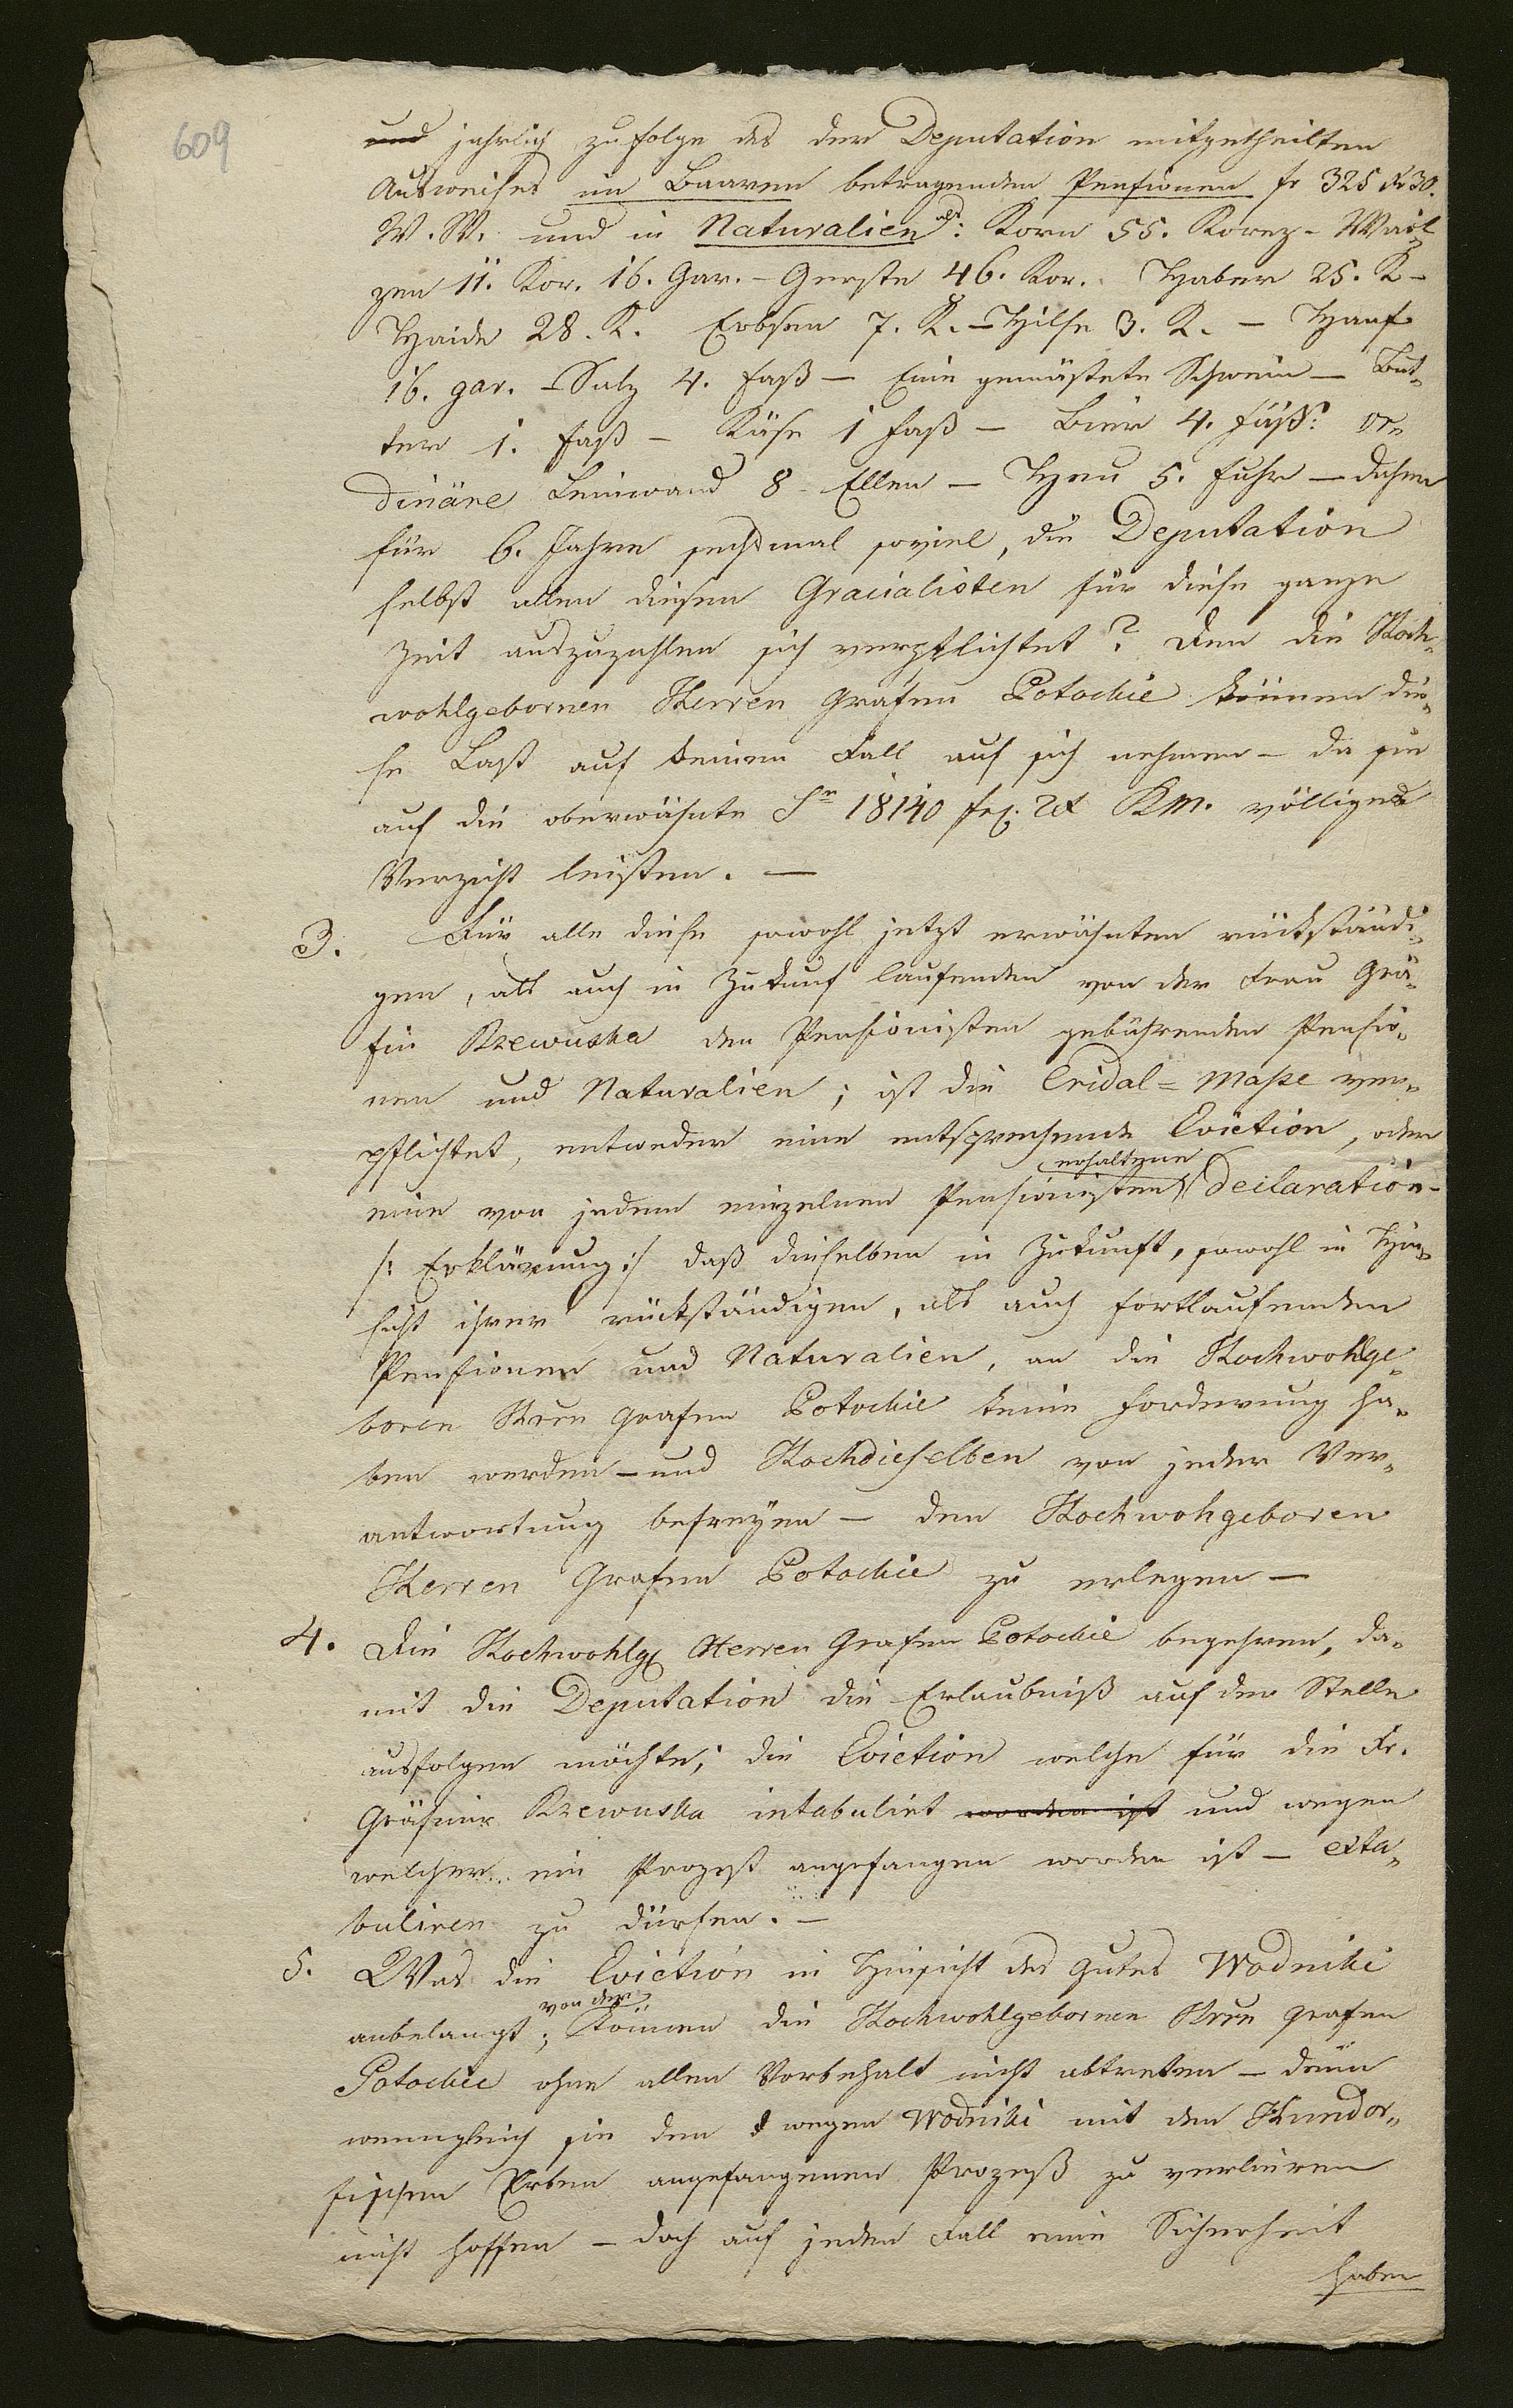 609
und jahrlich zufolge des der Deputation mitgetheilten
Ausweises im Baaren betragenden Pensionen fr 325 Xr 30.
W. W. und in Naturalien als: Korn 55. Korez - Wai-
zen 11. Kor. 16. Gar. - Gerste 46. Kor. Haber 25. K -
Haide 28. K. Erbsen 7. K. - Hilse 3. K. - Hanf
16. gar. - Salz 4. Faß - Eine gemästete Schwein - But-
ter 1. Faß - Käse 1 Faß - Bier 4. Fäß: or-
dinäre Leinwand 8 Ellen - Heu 5. Fuhr - daher
für 6. Jahre sechsmal soviel, die Deputation
selbst allen diesen Gracialisten für diese ganze
Zeit auszuzahlen sich verpflichtet? den die Hoch-
wohlgebornen Herren Grafen Potockie können die-
se Last auf keinen Fall auf sich nehmen - da sie
auf die oberwähnte 18140 KM. völligen
Verzicht leisten. -
3. Für alle diese sowohl jetzt erwähnten rückständi-
gen, als auch in Zukunf laufenden von der Frau Grä-
fin Rzewuska den Pensionisten gebührenden Pensio-
nen und Naturalien; ist die Cridal = Masse ver-
pflichtet, entweder eine entsprechende Eviction, oder
erhaltene
eine von jedem einzelnen Pensionisten Declaration -
/: Erklärung :/ daß dieselben in Zukunft, sowohl in Hin-
sicht ihrer rückständigen, als auch fortlaufenden
Pensionen und Naturalien, an die Hochwohlge-
boren Hren Grafen Potockie keine Forderung ha-
ben werden - und Hochdieselben von jeder Ver-
antwortung befreyen - den Hochwohgeboren
Herren Grafen Potockie zu erlegen -
4. Die Hochwohlg Herren Grafen Potockie begehren, da-
mit die Deputation die Erlaubniß auf der Stelle
ausfolgen möchte; die Eviction welche für die Fr.
Gräfinn Rzewuska intabulirt worden ist und wegen
welcher ein Prozeß angefangen worden ist - exta-
buliren zu dürfen. -
5. Was die Eviction in Hinsicht des Gutes Wodniki
von der
anbelangt; können die Hochwohlgebornen Hren Grafen
Potockie ohne allen Vorbehalt nicht abtreten - denn
wenngleich sie den wegen Wodniki mit den Kundor-
fischen Erben angefangenen Prozeß zu verlieren
nicht hoffen - doch auf jeden Fall eine Sicherheit
haben